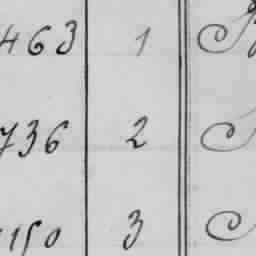 463 1
736 2
150 3